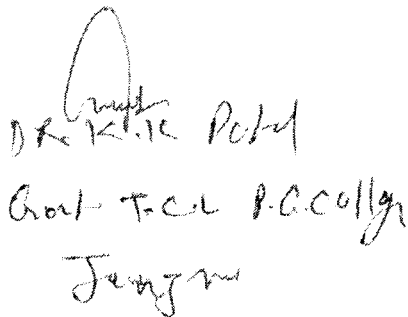 DR. K.K Patel
Govt T.C.L P.G. College
Janjgir